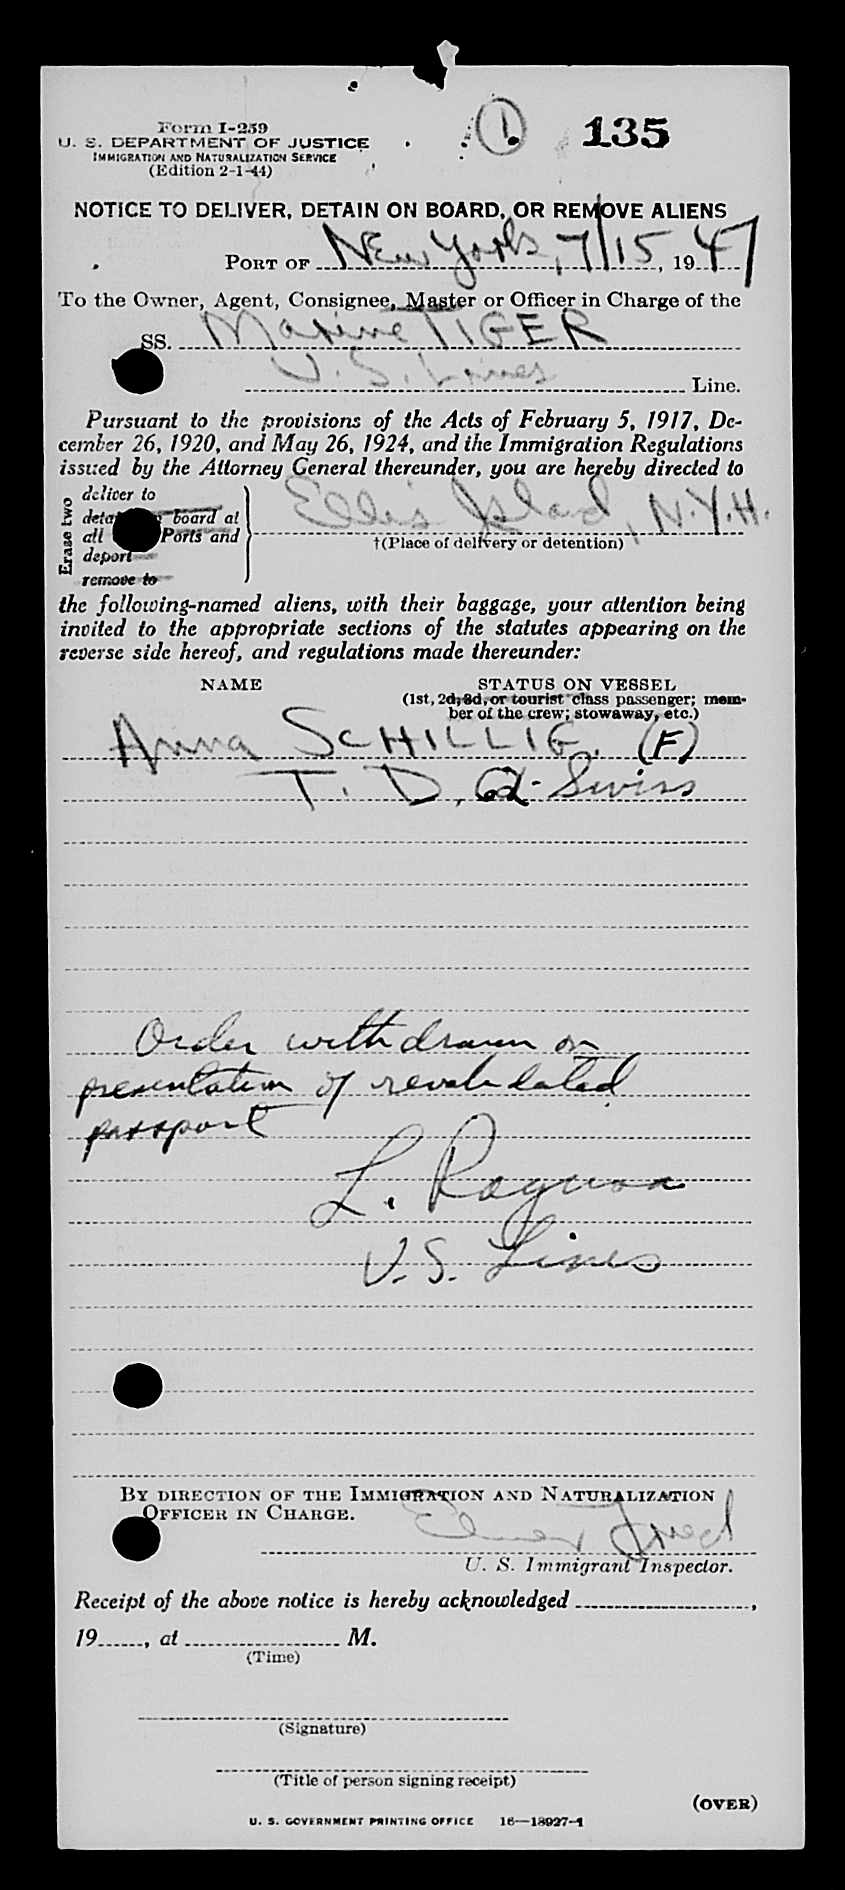 Form I-259
U. S. DEPARTMENT OF JUSTICE
IMMIGRATION AND NATURALIZATION SERVICE
(Edition 2-1-44)
1.
135
NOTICE TO DELIVER, DETAIN ON BOARD, OR REMOVE ALIENS
PORT OF New York, 7/15, 1947
To the Owner, Agent, Consignee, Master or Officer in Charge of the
SS. Marine TIGER
U.S. Lines Line.
Pursuant to the provisions of the Acts of February 5, 1917, De-
cember 26, 1920, and May 26, 1924, and the Immigration Regulations
issued by the Attorney General thereunder, you are hereby directed to
Erase two
deliver to
board at
all Ports and
deport
remove to
Ellis Island, N.Y.H.
†(Place of delivery or detention)
the following-named aliens, with their baggage, your attention being
invited to the appropriate sections of the statutes appearing on the
reverse side hereof, and regulations made thereunder:
NAME STATUS ON VESSEL
(1st, 2d, 3d, or tourist class passenger; mem-
ber of the crew; stowaway, etc.)
Anna SCHILLIG. (F)
T. D. Swiss
Order withdrawn on
presentation of revalidated
passport
L.
U.S. Lines
BY DIRECTION OF THE IMMIGRATION AND NATURALIZATION
OFFICER IN CHARGE.
U. S. Immigrant Inspector.
Receipt of the above notice is hereby acknowledged ,
19 , at M.
(Time)
(Signature)
(Title of person signing receipt)
(OVER)
U. S. GOVERNMENT PRINTING OFFICE 16—13927-1